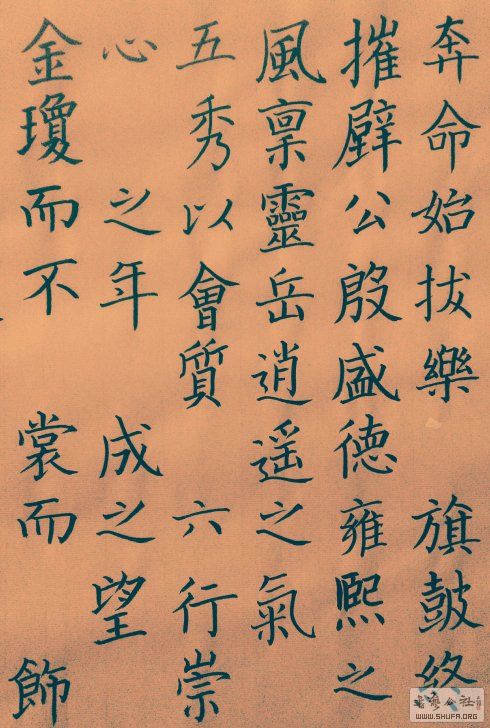 奔命始拔樂 旗鼓終
摧辟公殷盛德雍熙之
風稟靈岳逍遥之氣
五秀以會質 六行崇
心 之年 成之望
金瓊而不 裳而 飾
WWW.SHUFA.ORG